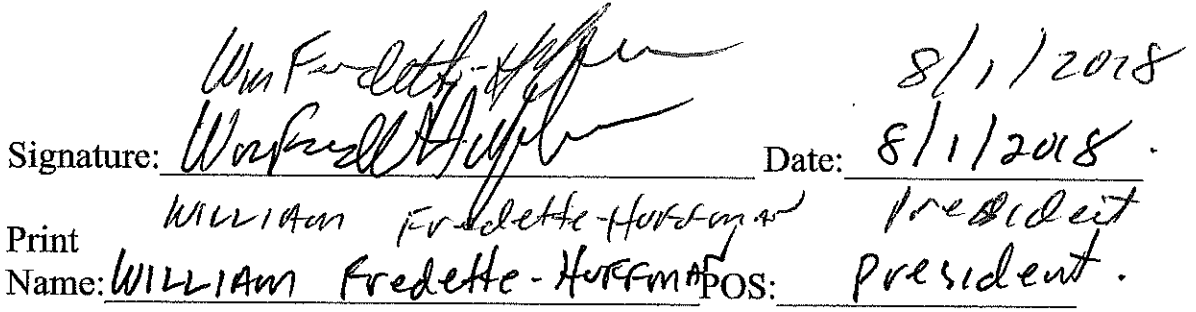 Wm Fredette-Huffman 8/1/2018
Signature: Wm Fredette-Huffman Date: 8/1/2018.
WILLIAM Fredette-Huffman President
Print
Name: WILLIAM Fredette-Huffman POS: President.